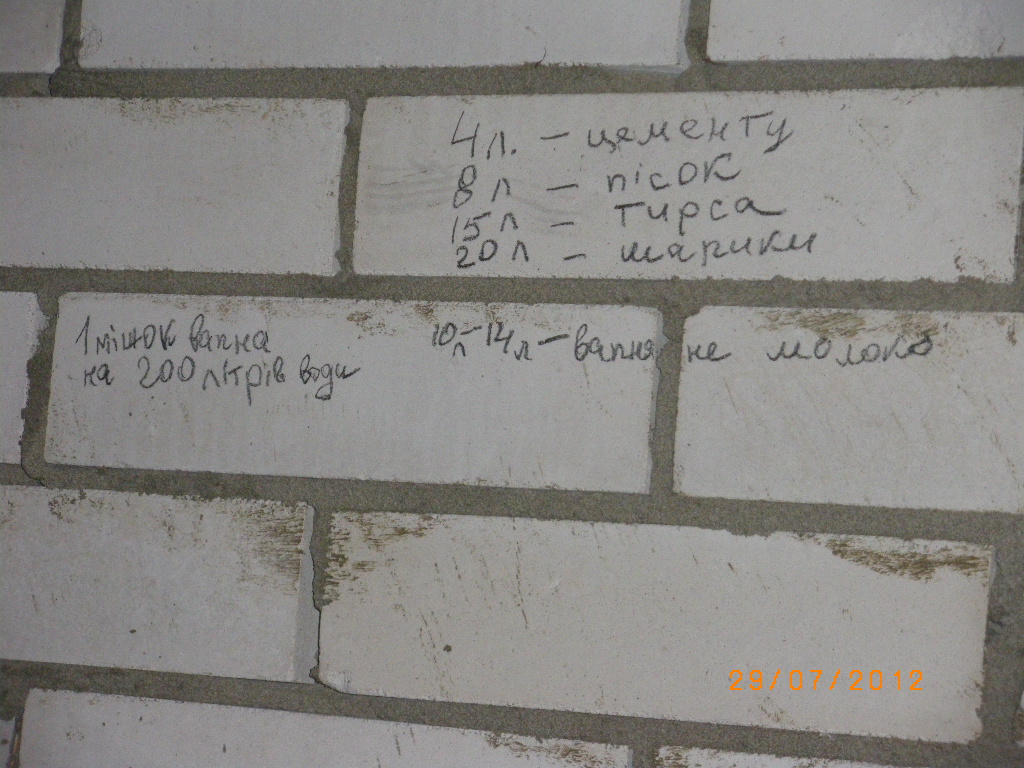 4л. – цементу
8 л – пісок
15 л – тирса
20 л – шарики
1 мішок вапна
на 200 літрів води
10л–14л – вапняне молоко
29/07/2012